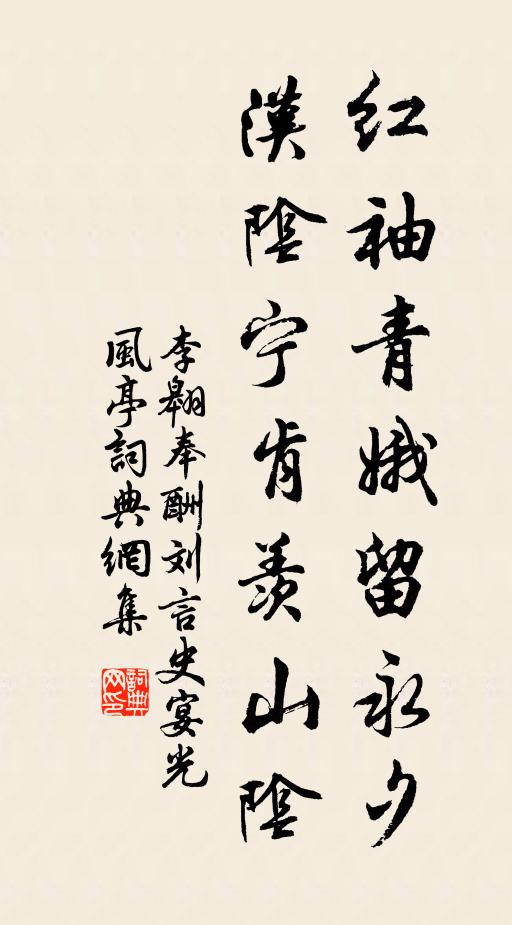 红袖青娥留永夕
漢陰宁肯羨山陰
李翱奉酬刘言史宴光
風亭詞典網集
詞典
网印